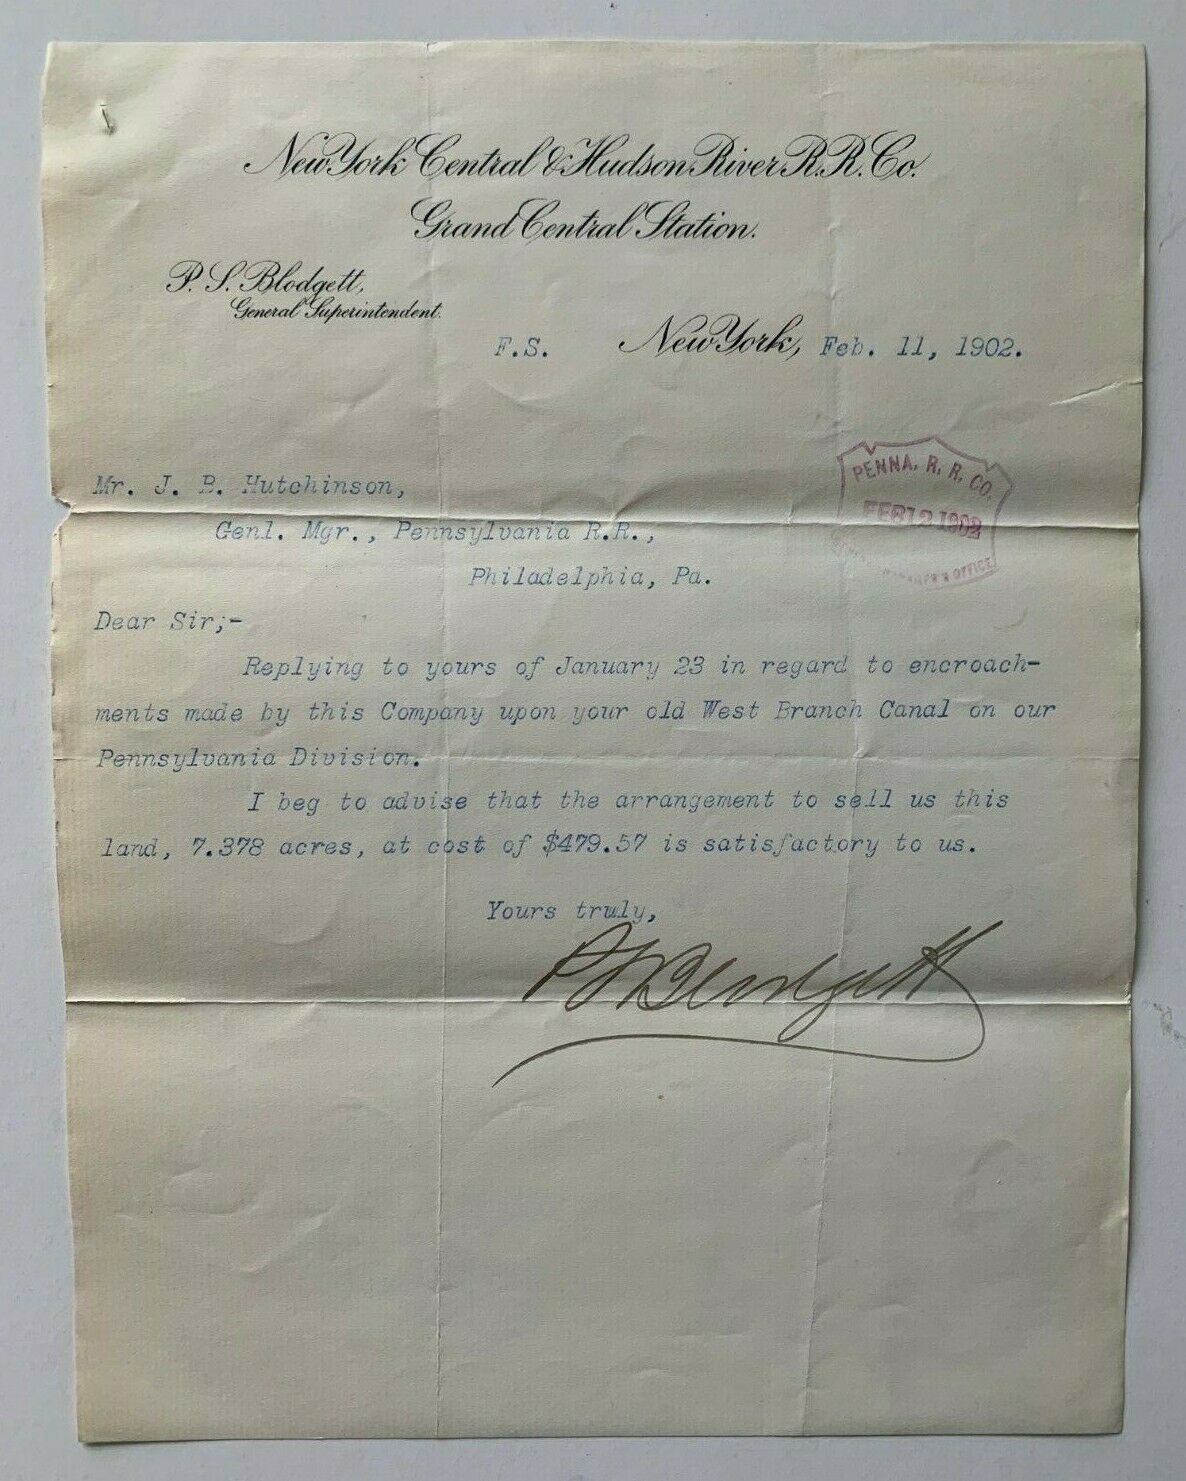 New York Central & Hudson River R.R. Co.
Grand Central Station.
P. S. Blodgett,
General Superintendent.
F.S. New York, Feb. 11, 1902.
PENNA. R. R. CO.
FEB 12 1902
OFFICE
Mr. J. B. Hutchinson,
Genl. Mgr., Pennsylvania R.R.,
Philadelphia, Pa.
Dear Sir;-
Replying to yours of January 23 in regard to encroach-
ments made by this Company upon your old West Branch Canal on our
Pennsylvania Division.
I beg to advise that the arrangement to sell us this
land, 7.378 acres, at cost of $479.57 is satisfactory to us.
Yours truly,
P S Blodgett